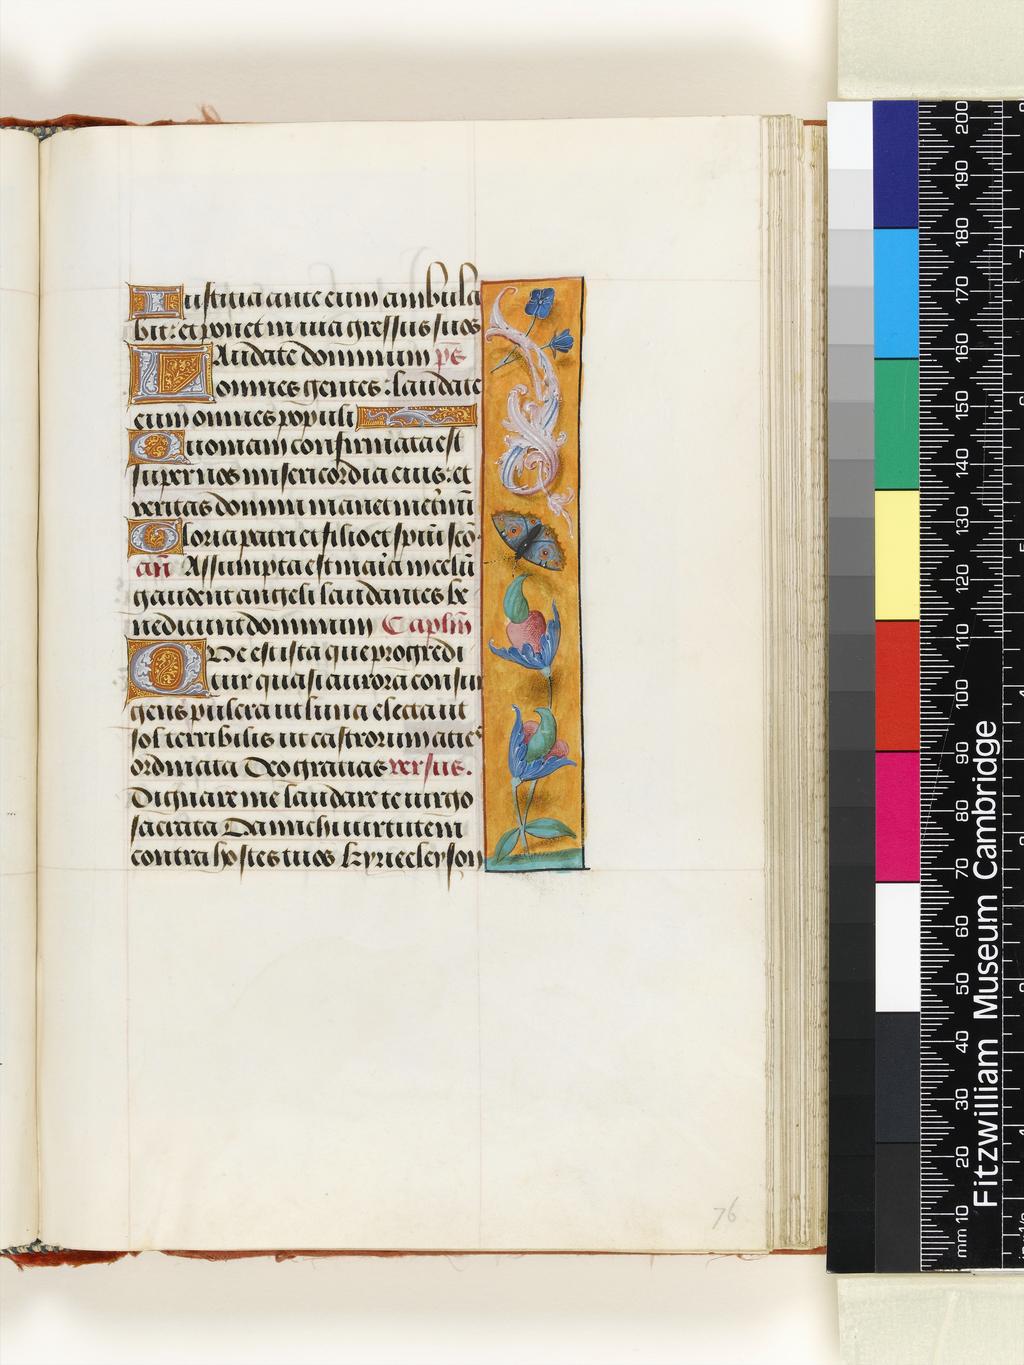 Iustitia ante eum ambula
bit: et ponet in uia gressus suos
LAudate dominum ps̄
omnes gentes: laudate
eum omnes populi
Quoniam confirmata est
super nos misericordia eius: et
veritas domini manet in etnū
Gloria patri et filio et spūi scō
añ Assumpta est maria in celū
gaudent angeli laudantes be
nedicunt dominum Caplm̄
QVe est ista que progredi
tur quasi aurora consur
gens pulcra ut luna electa ut
sol terribilis ut castrorum acies
ordinata Deo gratias versus.
Dignare me laudare te uirgo
sacrata Da michi uirtutem
contra hostes tuos kyrieeleyson
76
Fitzwilliam Museum Cambridge
mm 10 20 30 40 50 60 70 80 90 100 110 120 130 140 150 160 170 180 190 200